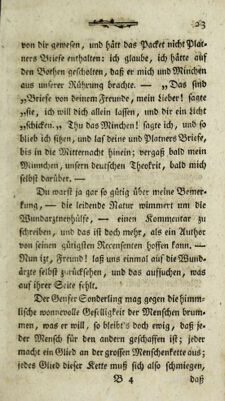 23
von dir gewesen, und hätt das Packet nicht Plat-
ners Briefe enthalten: ich glaube, ich hätte auf
den Bothen gescholten, daß er mich und München
aus unserer Rührung brachte. — „Das sind
„Briefe von deinem Freunde, mein Lieber! sagte
„sie, ich will dich allein lassen, und dir ein Licht
„schicken.“ Thu das Minchen! sagte ich, und so
blieb ich sitzen, und las deine und Platners Briefe,
bis in die Mitternacht hinein; vergaß bald mein
Miunchen, unsern deutschen Theokrit, bald mich
selbst darüber. —
Du warst ja gar so gütig über meine Bemer-
kung, — die leidende Natur wimmert um die
Wundarztnenhülfe, — einen Kommentar zu
schreiben, und das ist doch mehr, als ein Author
von seinen gütigsten Recensenten hoffen kann. —
Nun izt, Freund! laß uns einmal auf die Wund-
ärzte selbst zusehen, und das aufsuchen, was
auf ihrer Seite fehlt.
Der Genfer Sonderling mag gegen die himm-
lische wonnevolle Geselligkeit der Menschen brum-
men, was er will, so bleibt's doch ewig, daß je-
der Mensch für den andern geschaffen ist; jeder
macht ein Glied an der grossen Menschenkette aus;
jedes Glied dieser Kette muß sich also schmiegen,
B 4 daß